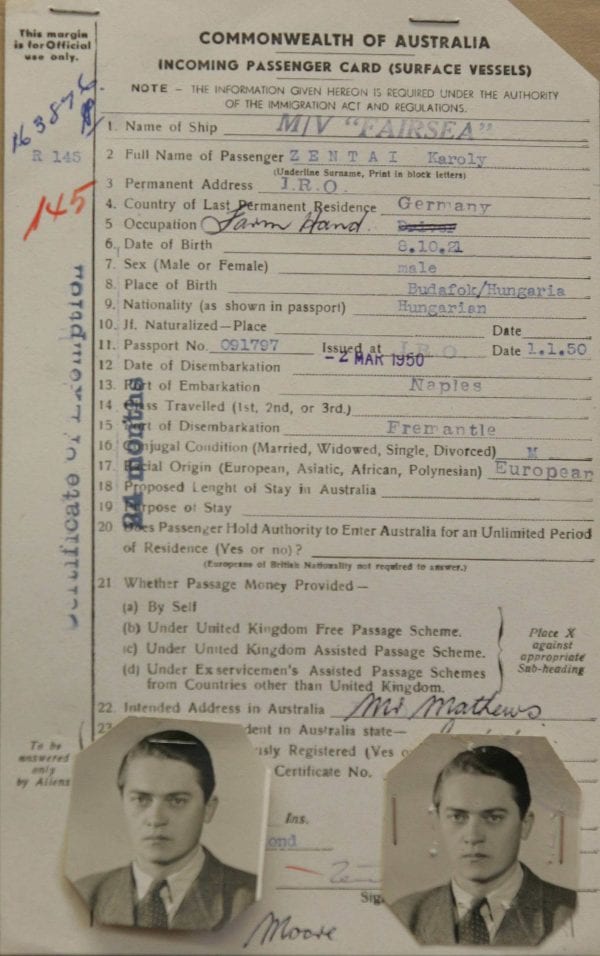 This margin
is for Official
use only.
COMMONWEALTH OF AUSTRALIA
INCOMING PASSENGER CARD (SURFACE VESSELS)
NOTE – THE INFORMATION GIVEN HEREON IS REQUIRED UNDER THE AUTHORITY
OF THE IMMIGRATION ACT AND REGULATIONS.
R 145
145
1. Name of Ship M/V "FAIRSEA"
2 Full Name of Passenger ZENTAI Karoly
(Underline Surname, Print in block letters)
3 Permanent Address I.R.O.
4. Country of Last Permanent Residence Germany
5 Occupation Farm Hand. Driver
6. Date of Birth 8.10.21
7. Sex (Male or Female) male
8. Place of Birth Budafok/Hungaria
9. Nationality (as shown in passport) Hungarian
10. If Naturalized—Place Date
11. Passport No. 091797 Issued at I.R.O. Date 1.1.50
12 Date of Disembarkation -2 MAR 1950
13. Port of Embarkation Naples
14. Class Travelled (1st, 2nd, or 3rd.)
15 Port of Disembarkation Fremantle
16 Conjugal Condition (Married, Widowed, Single, Divorced) M
17. Racial Origin (European, Asiatic, African, Polynesian) European
18 Proposed Lenght of Stay in Australia
19 Purpose of Stay
20 Does Passenger Hold Authority to Enter Australia for an Unlimited Period
of Residence (Yes or no)?
(Europeans of British Nationality not required to answer.)
21 Whether Passage Money Provided—
(a) By Self
(b) Under United Kingdom Free Passage Scheme.
(c) Under United Kingdom Assisted Passage Scheme.
(d) Under Ex servicemen's Assisted Passage Schemes
from Countries other than United Kingdom.
Place X
against
appropriate
Sub-heading
Certificate of Exemption
24 months
22. Intended Address in Australia Mr Mathews
23
dent in Australia state—
usly Registered (Yes o
Certificate No.
To be
answered
only
by Aliens
Ins.
ond
Sig
Moore